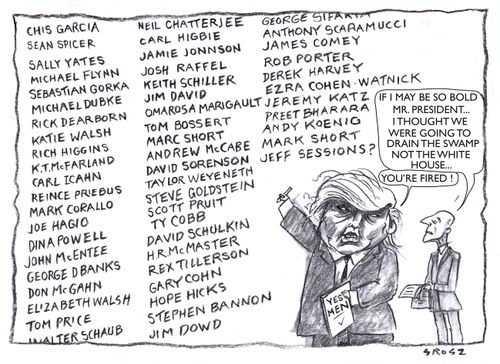 CHIS GARCIA
SEAN SPICER
SALLY YATES
MICHAEL FLYNN
SEBASTIAN GORKA
MICHAEL DUBKE
RICK DEARBORN
KATIE WALSH
RICH HIGGINS
K.T. McFARLAND
CARL ICAHN
REINCE PRIEBUS
MARK CORALLO
JOE HAGIO
DINA POWELL
JOHN McENTEE
GEORGE D BANKS
DON McGAHN
ELIZABETH WALSH
TOM PRICE
WALTER SCHAUB
NEIL CHATTERJEE
CARL HIGBIE
JAMIE JOHNSON
JOSH RAFFEL
KEITH SCHILLER
JIM DAVID
OMAROSA MARIGAULT
TOM BOSSERT
MARC SHORT
ANDREW McCABE
DAVID SORENSON
TAYLOR WEYENETH
STEVE GOLDSTEIN
SCOTT PRUIT
TY COBB
DAVID SCHULKIN
H.R. McMASTER
REX TILLERSON
GARY COHN
HOPE HICKS
STEPHEN BANNON
JIM DOWD
GEORGE SIFAKIS
ANTHONY SCARAMUCCI
JAMES COMEY
ROB PORTER
DEREK HARVEY
EZRA COHEN-WATNICK
JEREMY KATZ
PREET BHARARA
ANDY KOENIG
MARK SHORT
JEFF SESSIONS?
IF I MAY BE SO BOLD
MR. PRESIDENT...
I THOUGHT WE
WERE GOING TO
DRAIN THE SWAMP
NOT THE WHITE
HOUSE...
YOU'RE FIRED !
YES
MEN
GROSZ